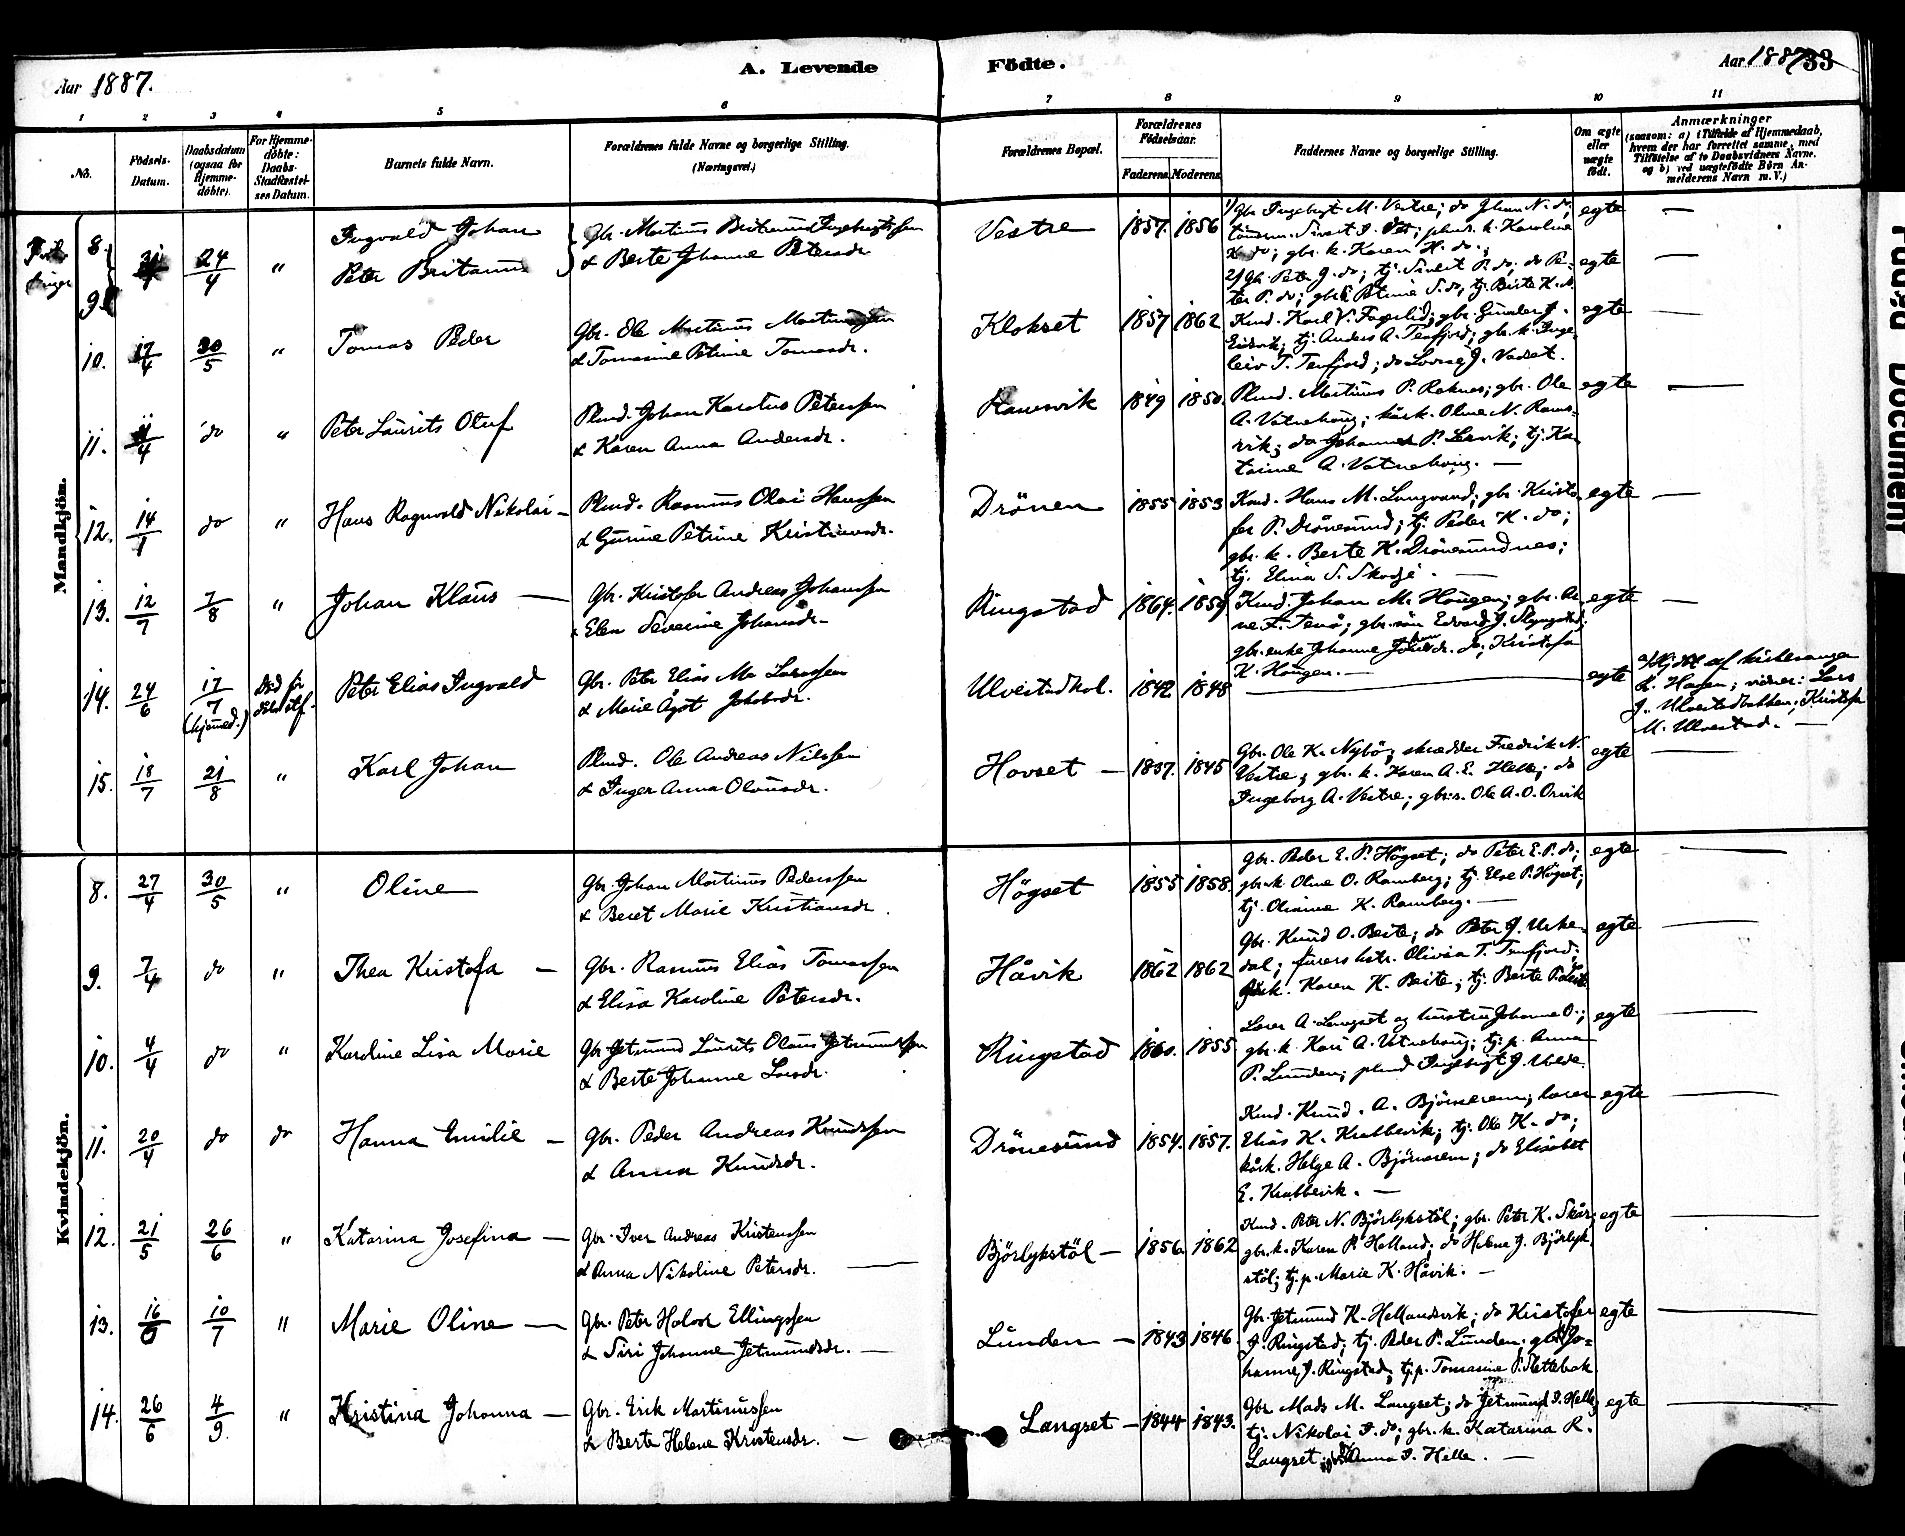 Aar 1887.
A. Levende Födte.
Aar 1887
33
1 2 3 4 5 6 7 8 9 10 11
No.
Födsels-Datum.
Daabsdatum (ogsaa for Hjemme-döbte).
For Hjemme-döbte: Daabs-Stadfæstel-ses Datum.
Barnets fulde Navn.
Forældrenes fulde Navne og borgerlige Stilling. (Næringsvei.)
Forældrenes Bopæl.
Forældrenes Födselsaar.
Faderens. Moderens.
Faddernes Navne og borgerlige Stilling.
Om ægte eller uægte födt.
Anmærkninger
(saasom: a) i Tilfælde af Hjemmedaab,
hvem der har forrettet samme, med
Tilföielse af to Daabsvidners Navne,
og b) ved uægtefödte Börn An-
melderens Navn m. V.)
Mandkjön.
8. 9. 24/4 "
Ingvald Johan
Peter Britanus
Gbr. Martinus Bertinus Ingebrigtssen
& Berte Johanne Petersdr.
Vestre 1857. 1856
1) Gbr. Ingebrigt M. Vestre; do Johan N. do;
Sivert I. ; k. Karoline
K. do; gbr. k. Karen H. do.;
2) Gbr. Peter J. do; tj. Sivert P. do; do Pe-
ter P. do; gbr. Petrine S. do; tj. Berte K. do.
egte —
egte —
10. 17/4 30/5 " Tomas Peder
Gbr. Ole Martinus Martinussen
& Tomasine Petrine Tomasdr.
Klokset 1857 1862
Knud. Karl V. Fagerlid; gbr. Gunder J.
Eidsvik; tj. Anders A. Tenfjord; gbr. k. Inge-
leiv T. Tenfjord; do Lovise J. Vadset.
egte —
11. 4/4 do " Peter Laurits Oluf
Plmd. Johan Karolus Peterssen
& Karen Anna Andersdr.
Ramsvik 1849 1850.
Plmd. Martinus P. Reknes; gbr. Ole
A. Vatnehaug; kårk. Oline N. Rams-
vik; do Johanne P. Lervik; tj. Ka-
tarine A. Vatnehaug. —
egte —
12. 14/1 do " Hans Ragnvald Nikolai —
Plmd. Rasmus Olai Hanssen
& Gurine Petrine Kristiansdr.
Drönen 1855 1853
Knud. Hans M. Langvand; gbr. Kristo-
fer P. Drönesund; tj. Peder K. do;
gbr. k. Berte K. Drönesundnes;
tj. Elina S. Skodje. —
egte —
13. 12/7 7/8 " Johan Klaus —
Gbr. Kristofer Andreas Johanssen
& Elen Severine Johansdr.
Ringstad 1864. 1859
Knud. Johan M. Haugen; gbr. Ar-
ne F. Tenö; gbr. sön Edvard J. Slyngstad;
gbr. enke Johanne Johansdr. do; Kristofer
K. Haugen. —
egte —
14. 24/6 17/7 (hjemmed.) Död för
Peter Elias Ingvald
Gbr. Peter Elias M. Larssen
& Marie Ågot Jakobsdr.
Ulvestadhol. 1842 1848
—
egte
a) Hjdöbt af kirkesanger
K. Haven; vidner: Lars
J. Ulvestadbakken; Kristofer
M. Ulvestad. —
15. 18/7 21/8 " Karl Johan
Plmd. Ole Andreas Nilssen
& Inger Anna Olausdr.
Hovset — 1837. 1845
Gbr. Ole K. Nybö; skrædder Fredrik N.
Vestre; gbr. k. Karen A. E. Helle; do
Ingeborg A. Vestre; gbr. s. Ole A. O. Orvik
egte —
Kvindekjön.
8. 27/4 30/5 " Oline
Gbr. Johan Martinus Pederssen
& Beret Marie Kristiansdr.
Högset 1855 1858.
Gbr. Peder E. P. Högset; do Peter E. P. do;
gbr. k. Oline O. Ramberg; tj. Else P. Högset;
tj. Oliane K. Ramberg. —
egte —
9. 7/4 do " Thea Kristofa —
Gbr. Rasmus Elias Tomassen
& Elisa Karoline Petersdr.
Håvik 1862 1862
Gbr. Knud O. Beite; do Peter J. Urke-
dal; furers hstr. Olivia T. Tenfjord;
Karen K. Beite; tj. Berte P.
egte —
10. 4/4 do " Karoline Lisa Marie
Gbr. Jetmund Laurits Olaus Jetmundssen
& Berte Johanne Larsdr.
Ringstad 1860. 1855
Lærer A. Langset og hustru Johanne O.;
gbr. k. Kari A. Vatnehaug; tj. p. Anna
P. Lunden; plmd Ingebrigt J. Uelde.
egte —
11. 20/4 do do Hanna Emilie —
Gbr. Peder Andreas Knudssen
& Anna Knudsdr.
Drönesund 1854. 1857.
Knud. Knud. A. Björnerem; lærer
Elias K. Krabbevik; tj. Ole K. do;
kårk. Helge A. Björnerem; do Elisabet
E. Krabbevik. —
egte —
12. 21/5 26/6 " Katarina Josefina —
Gbr. Iver Andreas Kristenssen
& Anna Nikoline Petersdr. —
Björlykstöl — 1856. 1862
Knud. Peter N. Björlykstöl; gbr. Peter K. Skår;
gbr. k. Karen P. Helland; do Helene J. Björlyk-
stöl; tj. p. Marie K. Håvik. —
egte —
13. 16/6 10/7 " Marie Oline —
Gbr. Peter Halvor Ellingssen
& Siri Johanne Jetmundsdr. —
Lunden — 1843 1846.
Gbr. Jetmund K. Hellandsvik; do Kristofer
J. Ringstad; tj. Peder P. Lunden; gbr. k. Jo-
hanne J. Ringstad; tj. p. Tomasine P. Slettebak.
egte —
14. 26/6 4/9. " Kristina Johanna —
Gbr. Erik Martinussen
& Berte Helene Kristensdr. —
Langset — 1844 1843.
Gbr. Mads M. Langset; do Jetmund I. Helle;
tj. Nikolai I. do; gbr. k. Katarina R.
Langset; Anna I. Helle. —
egte —